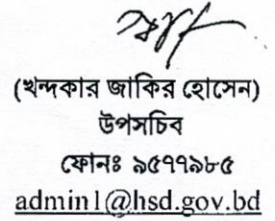 (খন্দকার জাকির হোসেন)
উপসচিব
ফোনঃ ৯৫৭৭৯৮৫
admin1@hsd.gov.bd